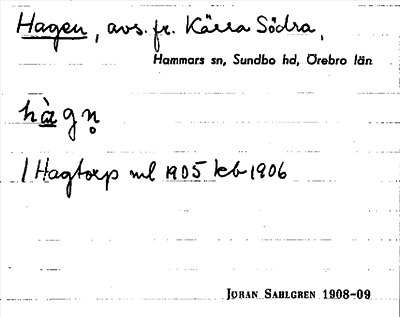 Hagen, avs. fr. Kärra Södra,
Hammars sn, Sundbo hd, Örebro län
hàgn̥
/ Hagtorp ml 1905 kb 1906
JØRAN SAHLGREN 1908-09